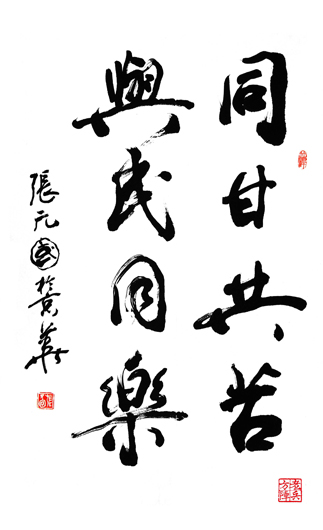 同甘共苦
與民同樂
張元國於京華